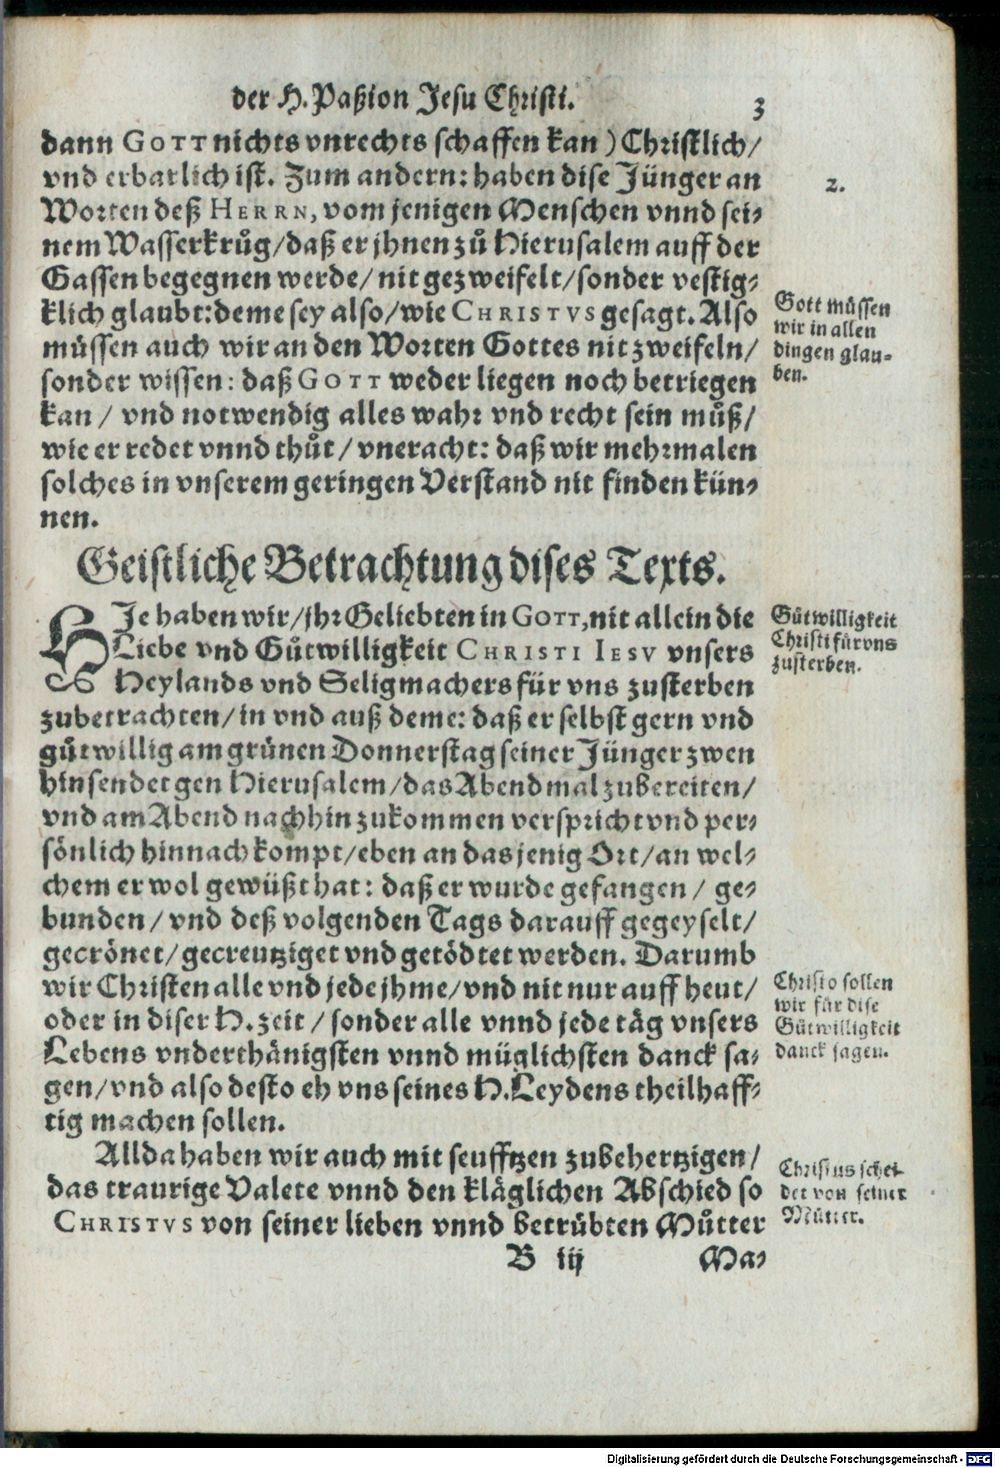 der H. Paßion Jesu Christi. 3
dann GOTT nichts vnrechts schaffen kan) Christlich/
vnd erbarlich ist. Zum andern: haben dise Jünger an
2.
Worten deß HERRN, vom jenigen Menschen vnnd sei-
nem Wasserkrůg/ daß er jhnen zů Hierusalem auff der
Gassen begegnen werde/ nit gezweifelt/ sonder vestig-
klich glaubt: deme sey also/ wie CHRISTVS gesagt. Also
müssen auch wir an den Worten Gottes nit zweifeln/
sonder wissen: daß GOTT weder liegen noch betriegen
kan/ vnd notwendig alles wahr vnd recht sein můß/
wie er redet vnnd thůt/ vneracht: daß wir mehrmalen
solches in vnserem geringen Verstand nit finden kün-
nen.
Gott müssen
wir in allen
dingen glau-
ben.
Geistliche Betrachtung dises Texts.
HIe haben wir/ jhr Geliebten in GOTT, nit allein die
Liebe vnd Gůtwilligkeit CHRISTI IESV vnsers
Heylands vnd Seligmachers für vns zusterben
zubetrachten/ in vnd auß deme: daß er selbst gern vnd
gůtwillig am grünen Donnerstag seiner Jünger zwen
hinsendet gen Hierusalem/ das Abendmal zubereiten/
vnd am Abend nachhin zukommen verspricht vnd per-
sönlich hinnach kompt/ eben an das jenig Ort/ an wel-
chem er wol gewüßt hat: daß er wurde gefangen/ ge-
bunden/ vnd deß volgenden Tags darauff gegeyselt/
gecrönet/ gecreutziget vnd getödtet werden. Darumb
wir Christen alle vnd jede jhme/ vnd nit nur auff heut/
oder in diser H. zeit/ sonder alle vnnd jede täg vnsers
Lebens vnderthänigsten vnnd müglichsten danck sa-
gen/ vnd also desto eh vns seines H. Leydens theilhaff-
tig machen sollen.
Gůtwilligkeit
Christi für vns
zusterben.
Christo sollen
wir für dise
Gůtwilligkeit
danck sagen.
Allda haben wir auch mit seufftzen zubehertzigen/
das traurige Valete vnnd den kläglichen Abschied so
CHRISTVS von seiner lieben vnnd betrübten Můtter
Christus schei-
det von seiner
Můtter.
B iij Ma-
Digitalisierung gefördert durch die Deutsche Forschungsgemeinschaft - DFG